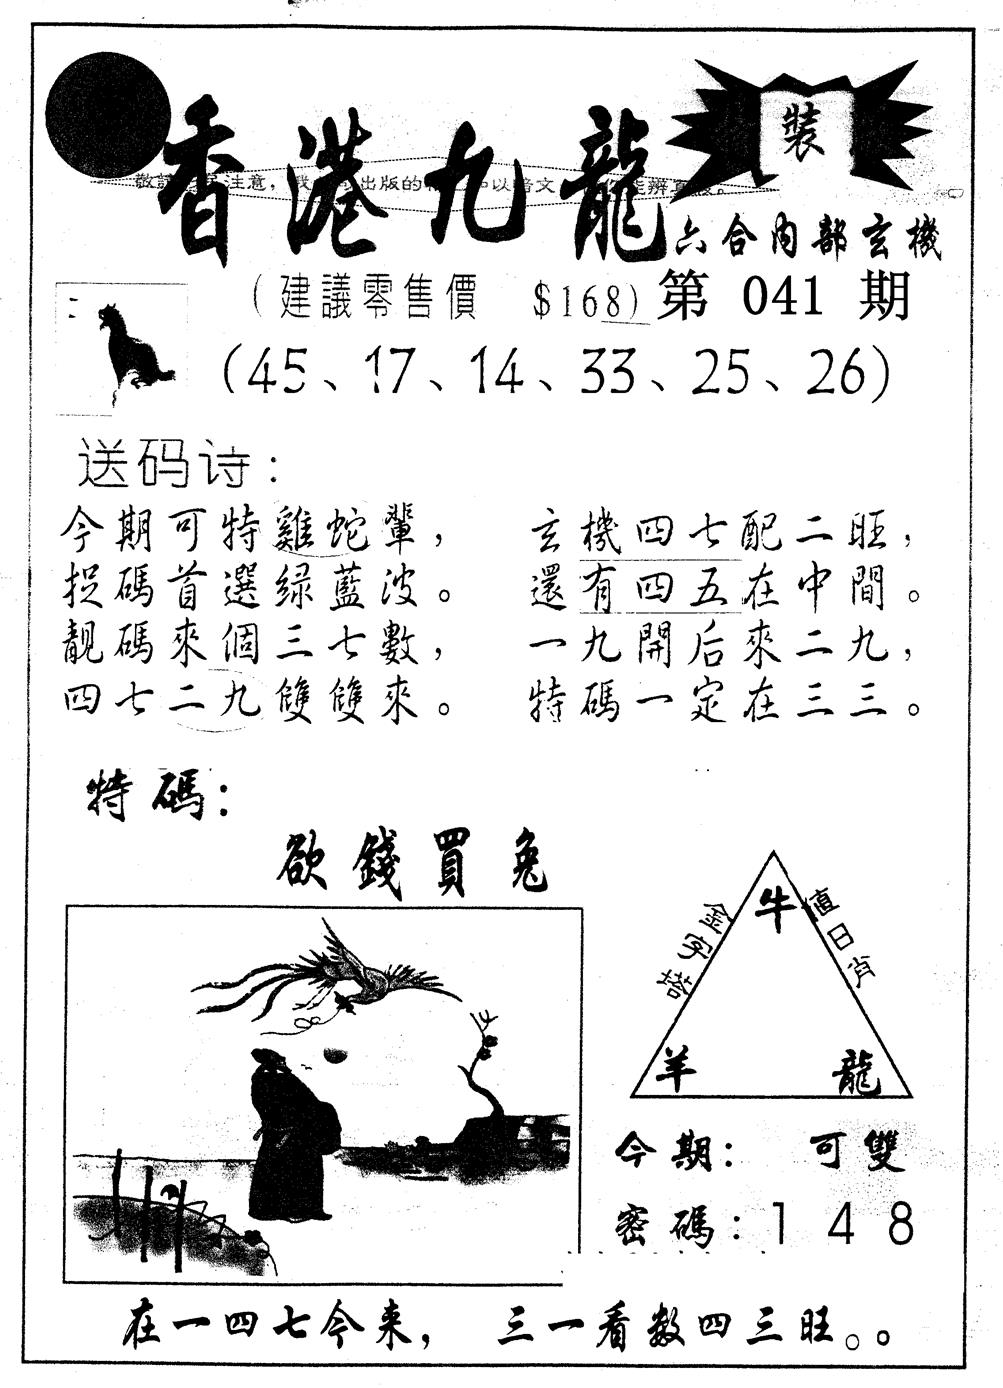 裝
香港九龍
六合內部玄機
(建議零售價 $168) 第 041 期
(45、17、14、33、25、26)
送码诗：
今期可特雞蛇輩， 玄機四七配二旺，
捉碼首選绿藍波。 還有四五在中間。
靚碼來個三七數， 一九開后來二九，
四七二九雙雙來。 特碼一定在三三。
特碼：
欲錢買兔
牛
金字塔
值日肖
羊 龍
今期： 可雙
密碼：1 4 8
在一四七今来， 三一看数四三旺。。